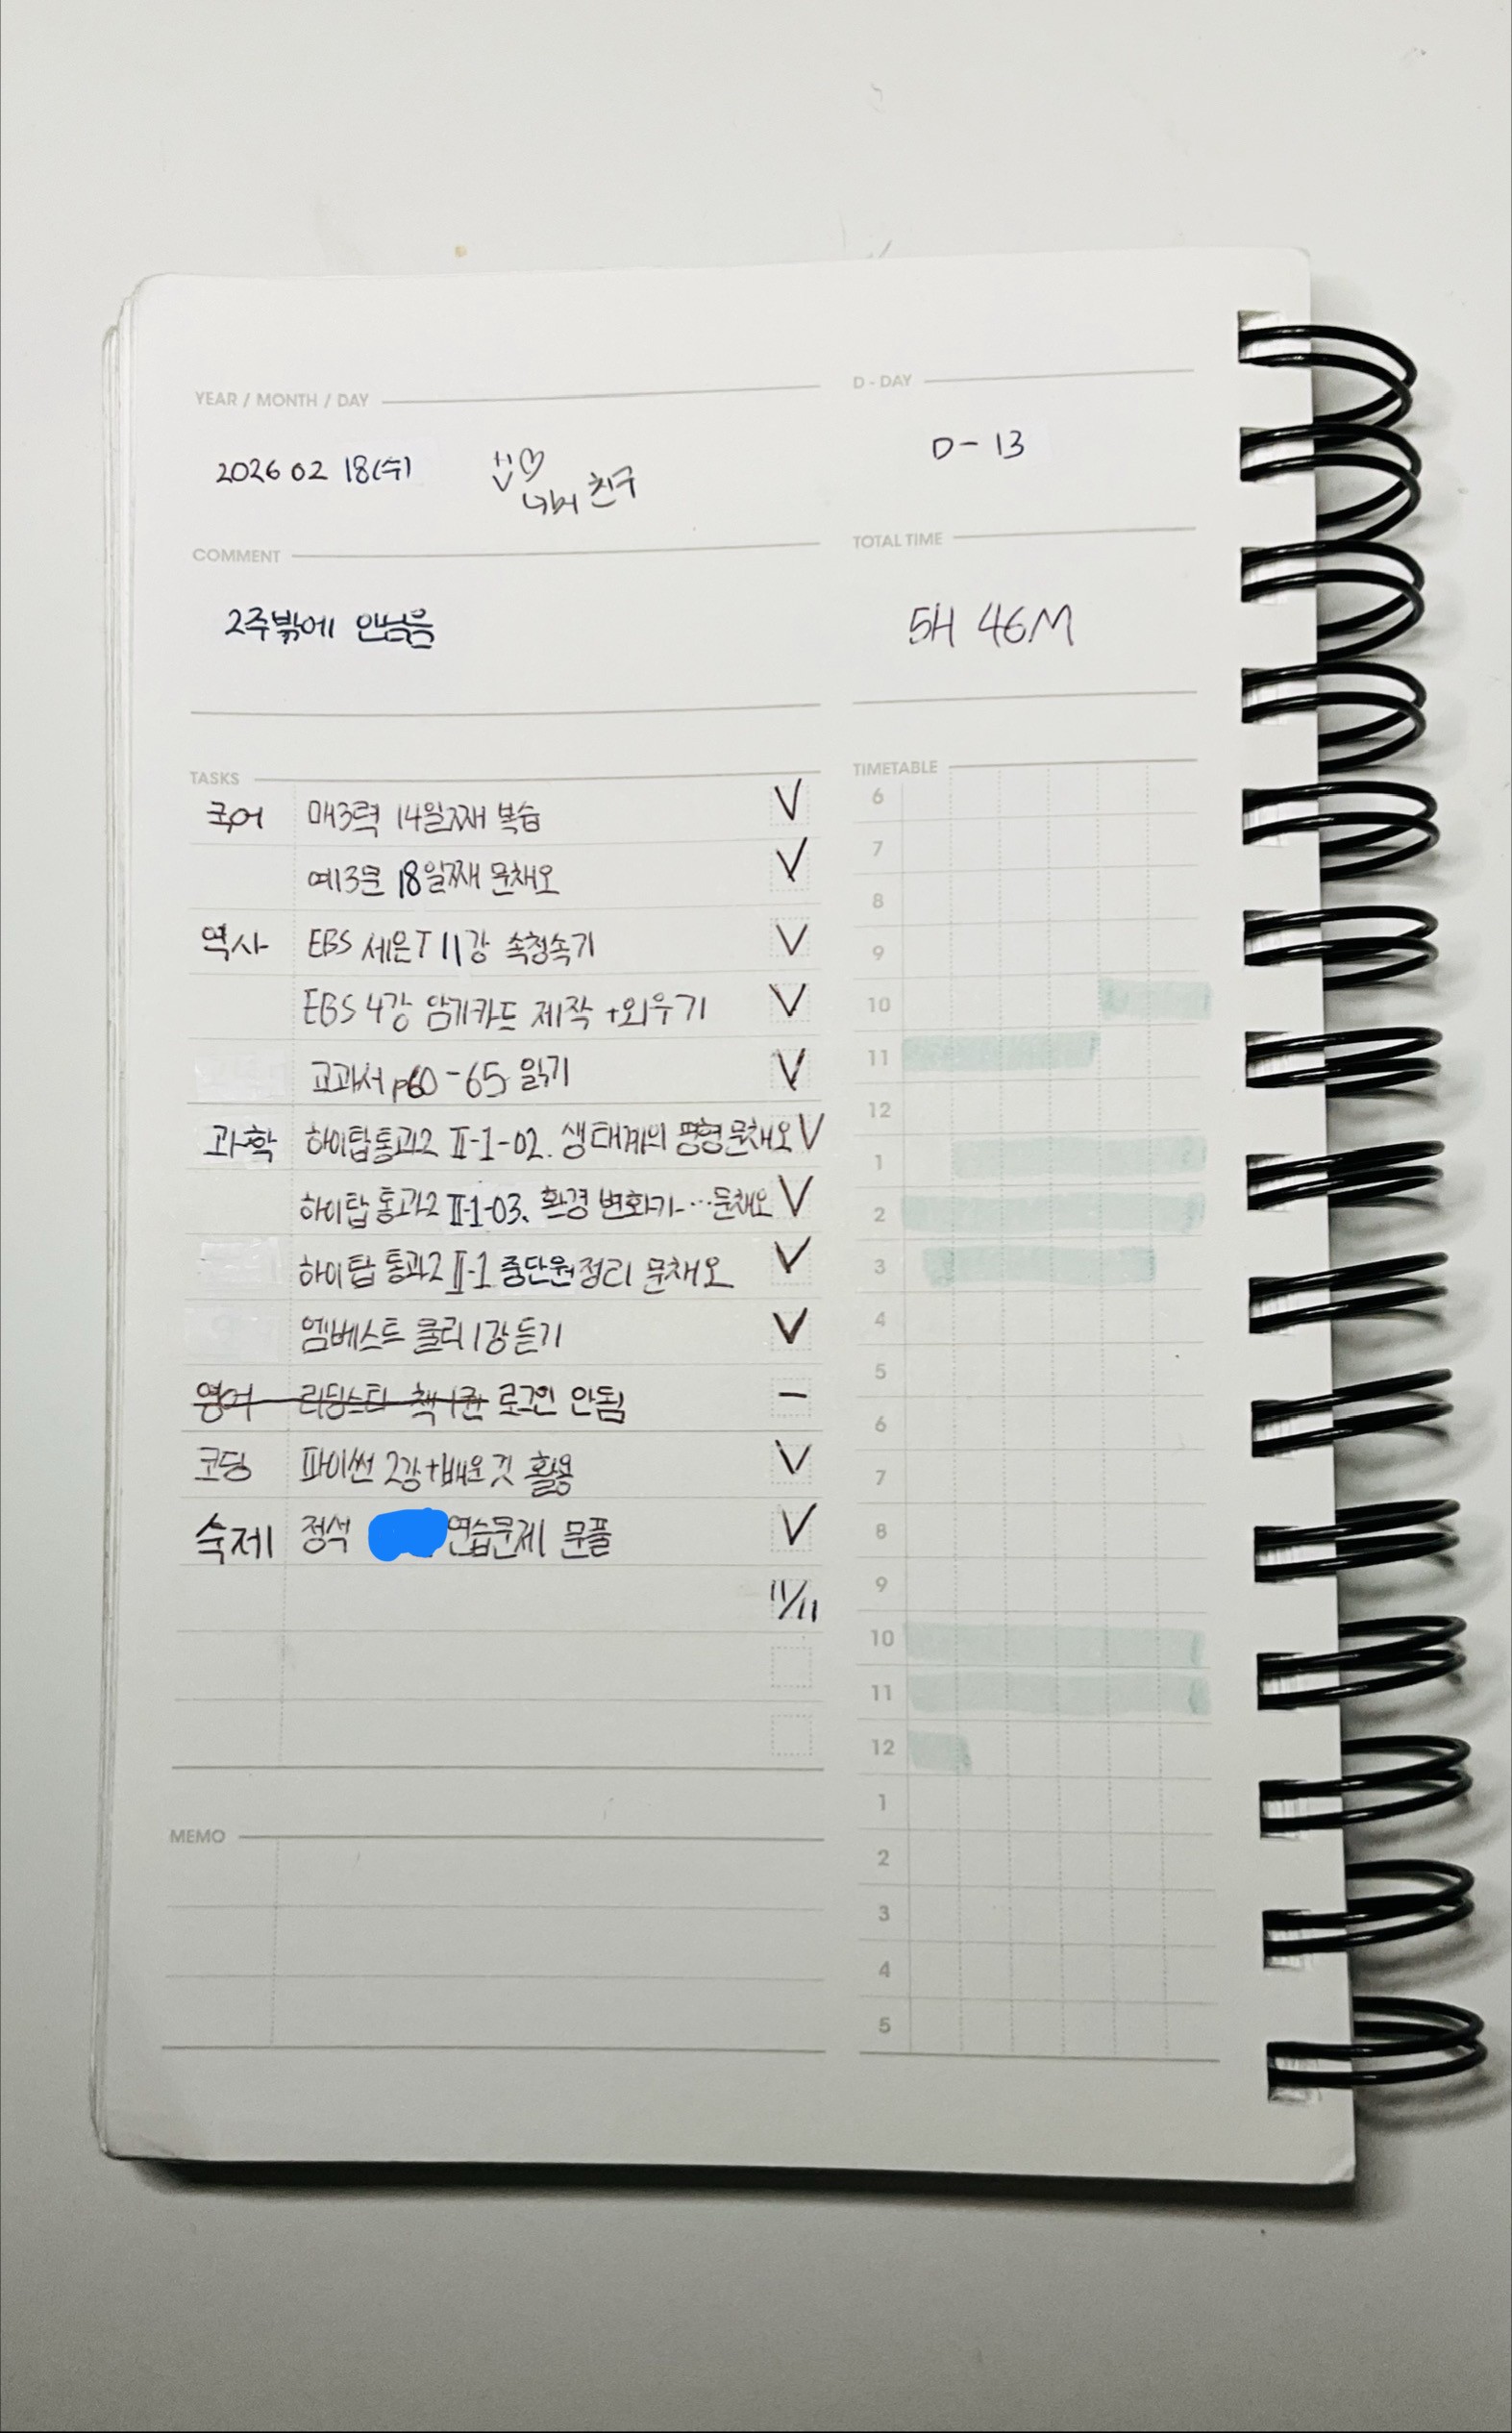 YEAR / MONTH / DAY
D - DAY
2026 02 18(수)
친구
D - 13
COMMENT
TOTAL TIME
2주밖에 안남음
5H 46M
TASKS
TIMETABLE
국어 매3력 14일째 복습 V
예3문 18일째 문채오 V
역사 EBS 세운T 11강 속청속기 V
EBS 4강 암기카드 제작 +외우기 V
교과서 p60-65 읽기 V
과학 하이탑통과2 II-1-02. 생태계의 평형 문채오 V
하이탑 통과2 II-1-03. 환경 변화가 … 문채오 V
하이탑 통과2 II-1 중단원정리 문채오 V
엠베스트 물리 1강 듣기 V
영어 리딩스타 책 1권 로그인 안됨 -
코딩 파이썬 2강+배운 것 활용 V
숙제 정석 연습문제 문풀 V
11/11
6
7
8
9
10
11
12
1
2
3
4
5
6
7
8
9
10
11
12
1
2
3
4
5
MEMO